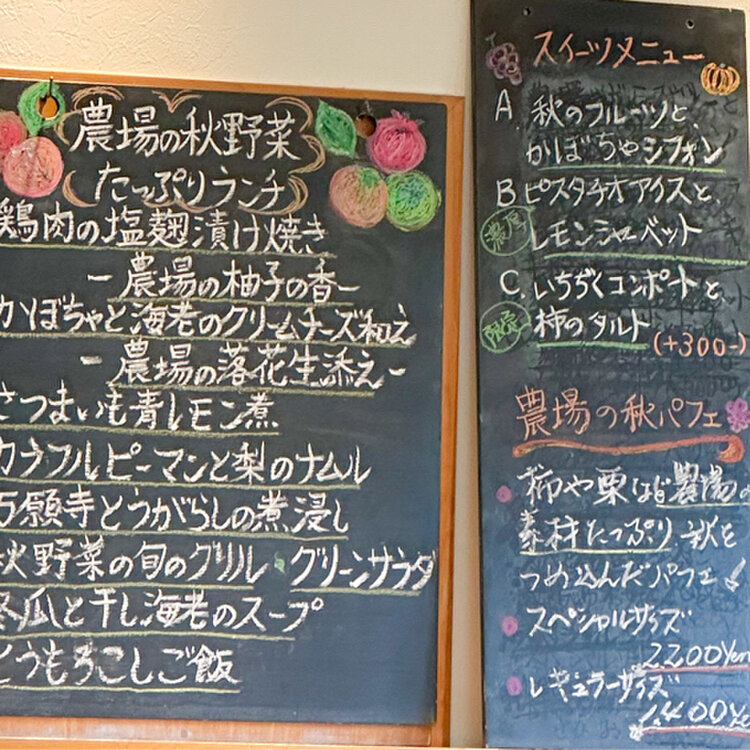 農場の秋野菜
たっぷりランチ
鶏肉の塩麹漬け焼き
ー農場の柚子の香ー
かぼちゃと海老のクリームチーズ和え
ー農場の落花生添えー
さつまいも青レモン煮
カラフルピーマンと梨のナムル
万願寺とうがらしの煮浸し
秋野菜の旬のグリル・グリーンサラダ
冬瓜と干し海老のスープ
とうもろこしご飯
スイーツメニュー
A. 秋のフルーツと、
かぼちゃシフォン
B ピスタチオアイスと、
濃厚 レモンシャーベット
C. いちぢくコンポートと
限定 柿のタルト (+300-)
農場の秋パフェ
柿や栗など農場の
素材たっぷり秋を
つめ込んだパフェ
スペシャルサイズ
2.200Yen
レギュラーサイズ
1.400Ye